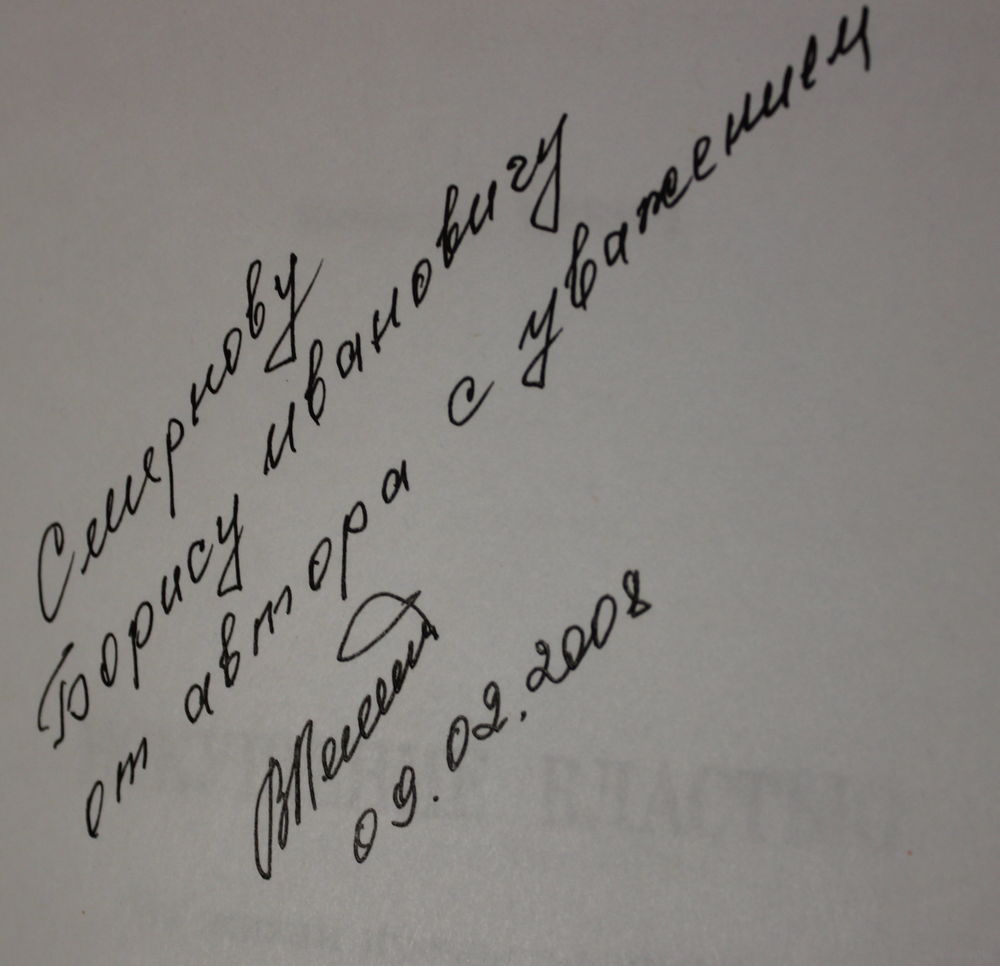 Смирнову
Борису Ивановичу
от автора с уважением
09.02.2008